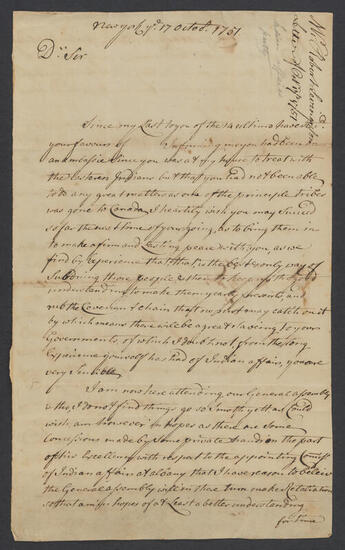 New york ye. 17 Octobr. 1751
Dr. Sir
Mr. Robert Livingston
Since my Last to you of the 14 ultimo I have
your favours of Informing me you had been
an embassie Since you was at my house to treat with
the Eastern Indians but that you had not been able
to do any great matter as one of the principle tribes
was gone to Canada, I heartily wish you may Succeed
so far the next time of your going, as to bring them in
to make a firm and Lasting peace with you, as we
find by Experience that that is the best & only way of
Subduing those people & then to keep up the good
understanding to make them yearly presents, and
rub the Covenant Chain that no rust may catch on it
by which means there will be a great saving to your
Governments, of which I doubt not from the Long
Experience yourself has had of Indian affairs, you are
very Sensible
I am now here attending our General assembly
& tho, I do not find things go so Smooth yett as Could
wish, am however in hopes as there are Some
Concessions made by Some private hands on the part
of his Excellency with respect to the appointing Comiss
of Indian affairs at albany that I have reason to beleive
the General assembly will in their turn make Retaliation
so that am in hopes of at Least a better understanding
for time